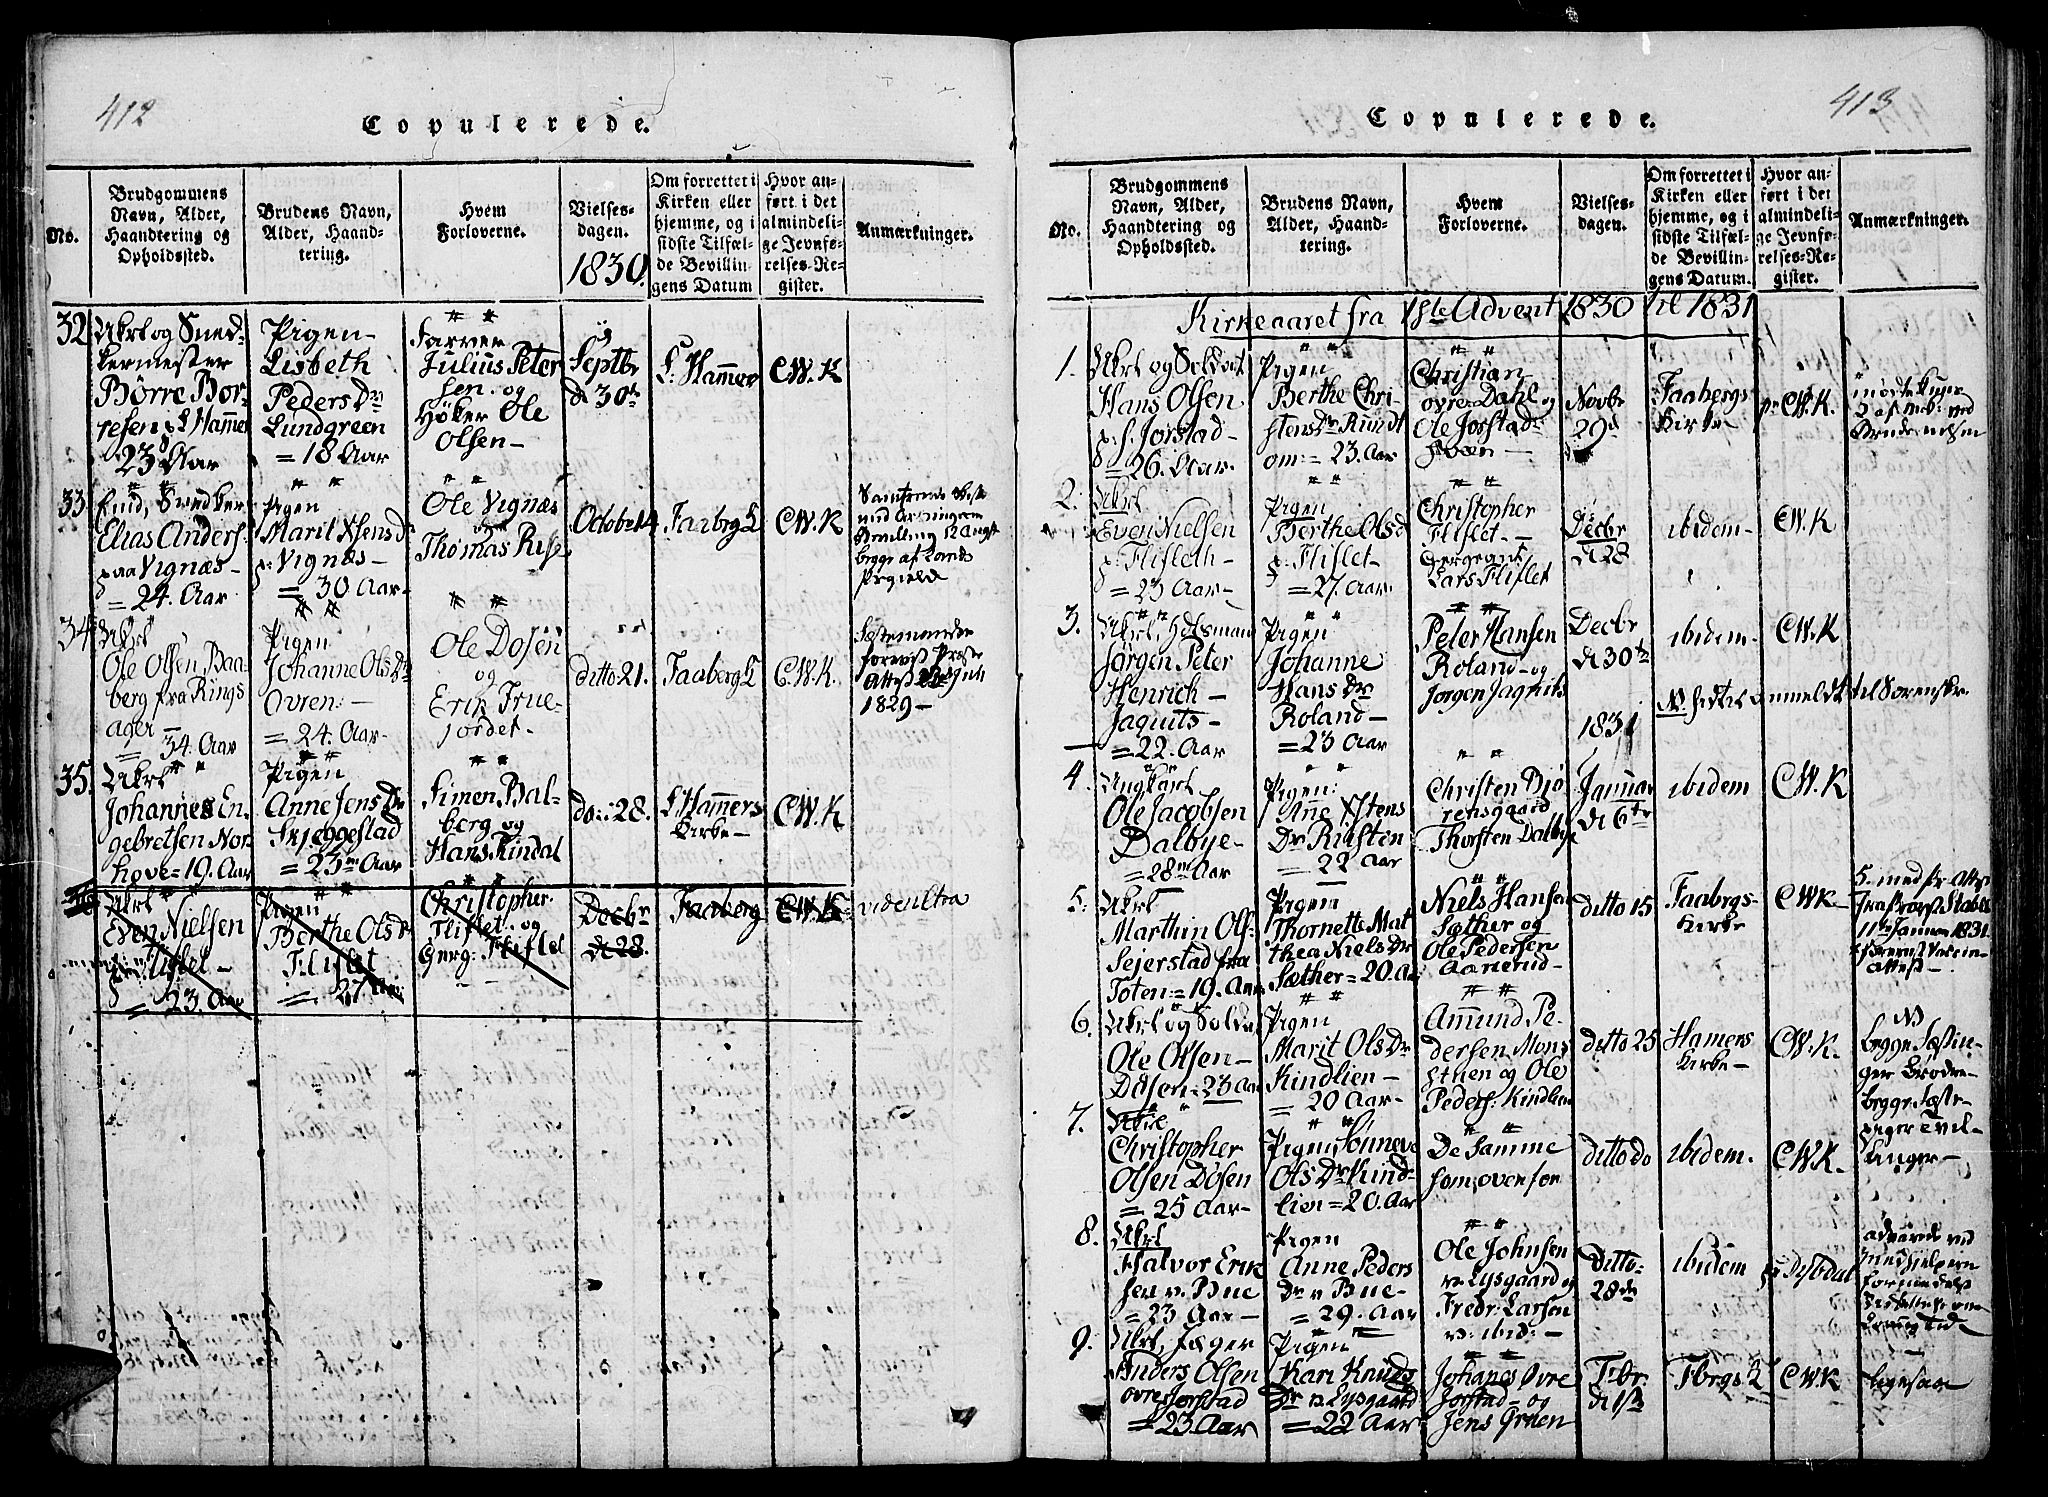 412
Copulerede.
No.
Brudgommens
Navn, Alder,
Haandtering og
Opholdssted.
Brudens Navn,
Alder, Haand-
tering.
Hvem
Forloverne.
Vielses-
dagen.
1830.
Om forrettet i
Kirken eller
hjemme, og i
sidste Tilfæl-
de Bevillin-
gens Datum
Hvor an-
ført i det
almindeli-
ge Jevnfø-
relses-Re-
gister.
Anmærkninger.
32
Ukrl og Sned-
kermester
Børre Bør-
resen L Hammer
23 Aar
Pigen
Lisbeth
Peders Dr
Lundgreen
= 18 Aar
Farver
Julius Peter
sen og
Høker Ole
Olsen -
Septbr
d 30te
L: Hammer
CW.K
33.
Enkd, Snedker
Elias Anders.
paa Vignæs -
= 24. Aar
Pigen
Marit Xstens D
p: Vignæs -
= 30 Aar -
Ole Vignæs
og
Thomas Rise
October 14
Faabrg K
CW.K
Bevilling 12 Augst
begge af
34
Ukrl
Ole Olsen Baa-
berg fra Rings
ager -
= 34. Aar
Pigen
Johanne Ols Dr
Ovren: -
= 24. Aar -
Ole Dosen
og
Erik True-
jordet.
ditto: 21.
Faaberg K
C.W.K.
1829 -
35.
Ukrl
Johannes En-
gebretsen Nor-
hove = 19. Aar
Pigen
Anne Jens Dr
Skjeggestad
= 23 Aar
Simen Bal-
berg og
Hans Kindal
do: 28.
L: Hamers
Kirke -
CW.K
36
Ukrl
Even Nielsen
Flislet -
= 23. Aar
Pigen
Berthe Ols d
Flislet
= 27 Aar
Christopher
Flislet. og
Serg: Flislet
Decbr
d 28
Faaberg
C.W.K
vide ultra
413
Copulerede.
No.
Brudgommens
Navn, Alder,
Haandtering og
Opholdssted.
Brudens Navn,
Alder, Haand-
tering.
Hvem
Forloverne.
Vielses-
dagen.
Om forrettet i
Kirken eller
hjemme, og i
sidste Tilfæl-
de Bevillin-
gens Datum.
Hvor an-
ført i det
almindeli-
ge Jevnfø-
relses-Re-
gister.
Anmærkninger.
Kirkeaaret fra 1ste Advent 1830 til 1831
1.
Ukrl og Soldat
Hans Olsen
p: Jorstad -
= 26. Aar.
Pigen
Berthe Chri-
stens Dr Rundt
om: = 23. Aar
Christian
øvre Dahl og
Ole Jorstad
Novbr
29d
Faabergs
Kirke
CW.K.
2.
Ukrl
Even Nielsen
p: Flisleth -
= 23 Aar -
Pigen
Berthe Ols d
p: Flislet -
= 27. Aar.
Christopher
Flislet. -
Sergeant
Lars Flislet
Decbr
d 28
ibidem -
CW.K
3.
Jørgen Peter
Henrich -
Jaquits -
= 22. Aar
Pigen
Johanne
Hans Dr
Roland -
= 23 Aar
Peter Hansen
Roland - og
Jørgen Jaquits
Decbr
d 30te
ibidem -
CW.K
1831
4.
Ungkarl
Ole Jacobsen
Dalbye -
= 28 Aar
Pigen:
Anne Xstens
Dr Rusten
= 22 Aar
Christen Bjø
rensgaard
Thorsten Dalbye
Januar
d 6te
ibidem
C.W.K
5.
Ukrl
Marthin Ols.
Sejerstad fra
Toten = 19. Aar
Pigen
Thornette Mat
thea Niels Dr
Sæther = 20. Aar
Niels Hansen
Sæther og
Ole Pedersen
Aanerud -
ditto 15
Faabrgs -
Kirke
C.W.K -
11te Januar 1831
6.
Ukrl og Solda
Ole Olsen -
Dosen = 23 Aar
Pigen
Marit Ols Dr
Kindlien -
= 20 Aar -
Amund Pe-
dersen Mons
stuen og Ole
Peders: Kindlien
ditto 25
Hamers
Kirke -
C.W.K.
begge
ger Brødre -
begge
piger
7.
Ukrl
Christopher
Olsen Døsen
= 25 Aar -
Pigen Sønneve
Ols Dr Kind-
lien = 20. Aar
De Samme
som ovenfor
ditto do
ibidem.
C.W.K.
8.
Ukrl
Halvor Erik
sen v. Bue
= 23 Aar -
Pigen
Anne Peders
Dr v Bue -
= 29. Aar
Ole Johnsen
v. Lysgaard og
Fredr: Larsen
v: ibid: -
Ditto -
28de
ibidem
9.
Ukrl, Jæger
Anders Olsen
øvre Jorstad
= 23. Aar
Pigen
Kari Knuds
Dr v Lysgaard
= 22 Aar
Johanes Øvre
Jorstad - og
Jens Gruen
Fbr.
Fbrgs K
C.W.K
ligesaa